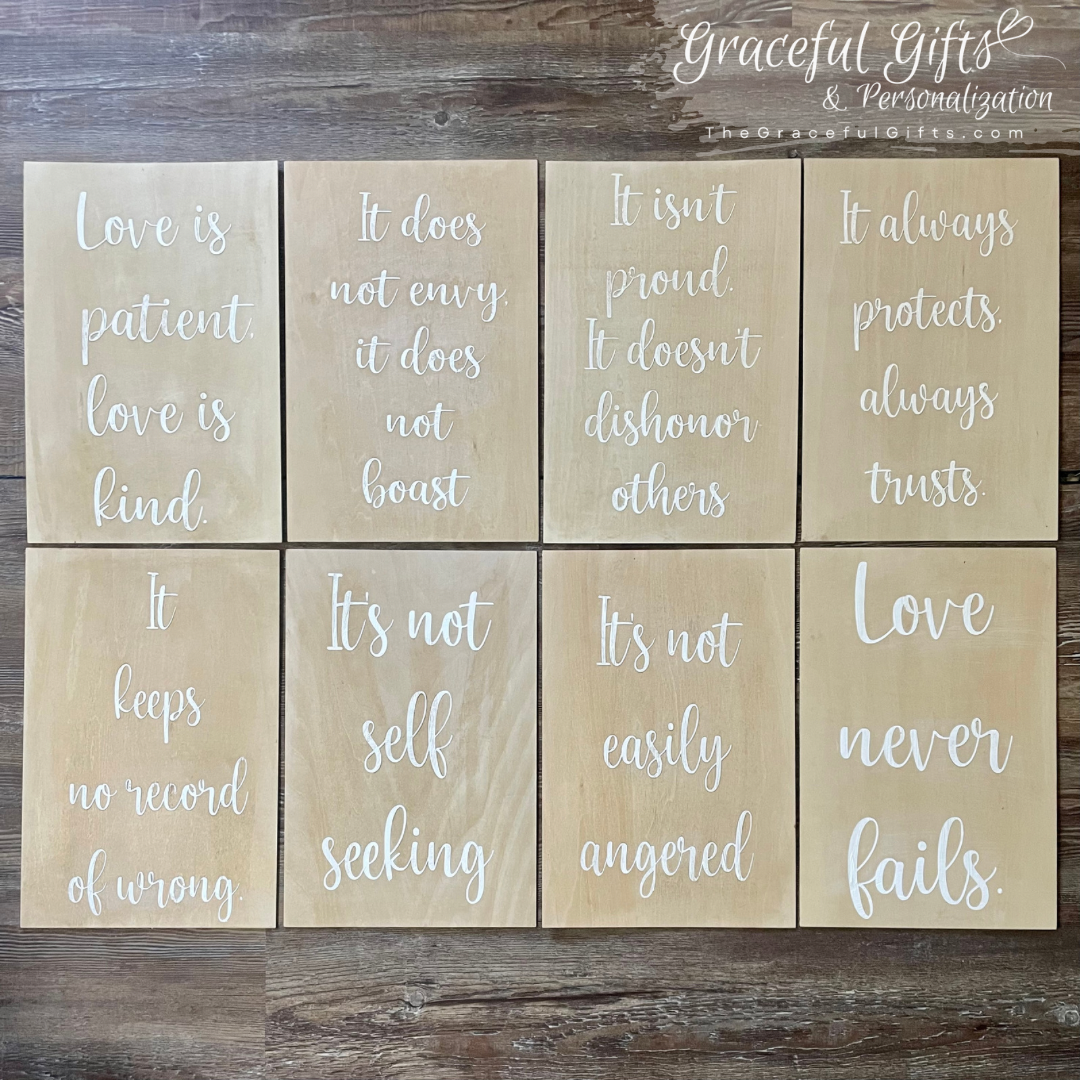 Graceful Gifts
& Personalization
TheGracefulGifts.com
Love is
patient,
love is
kind.
It does
not envy,
it does
not
boast
It isn't
proud.
It doesn't
dishonor
others
It always
protects.
always
trusts.
It
keeps
no record
of wrong.
It's not
self
seeking
It's not
easily
angered
Love
never
fails.